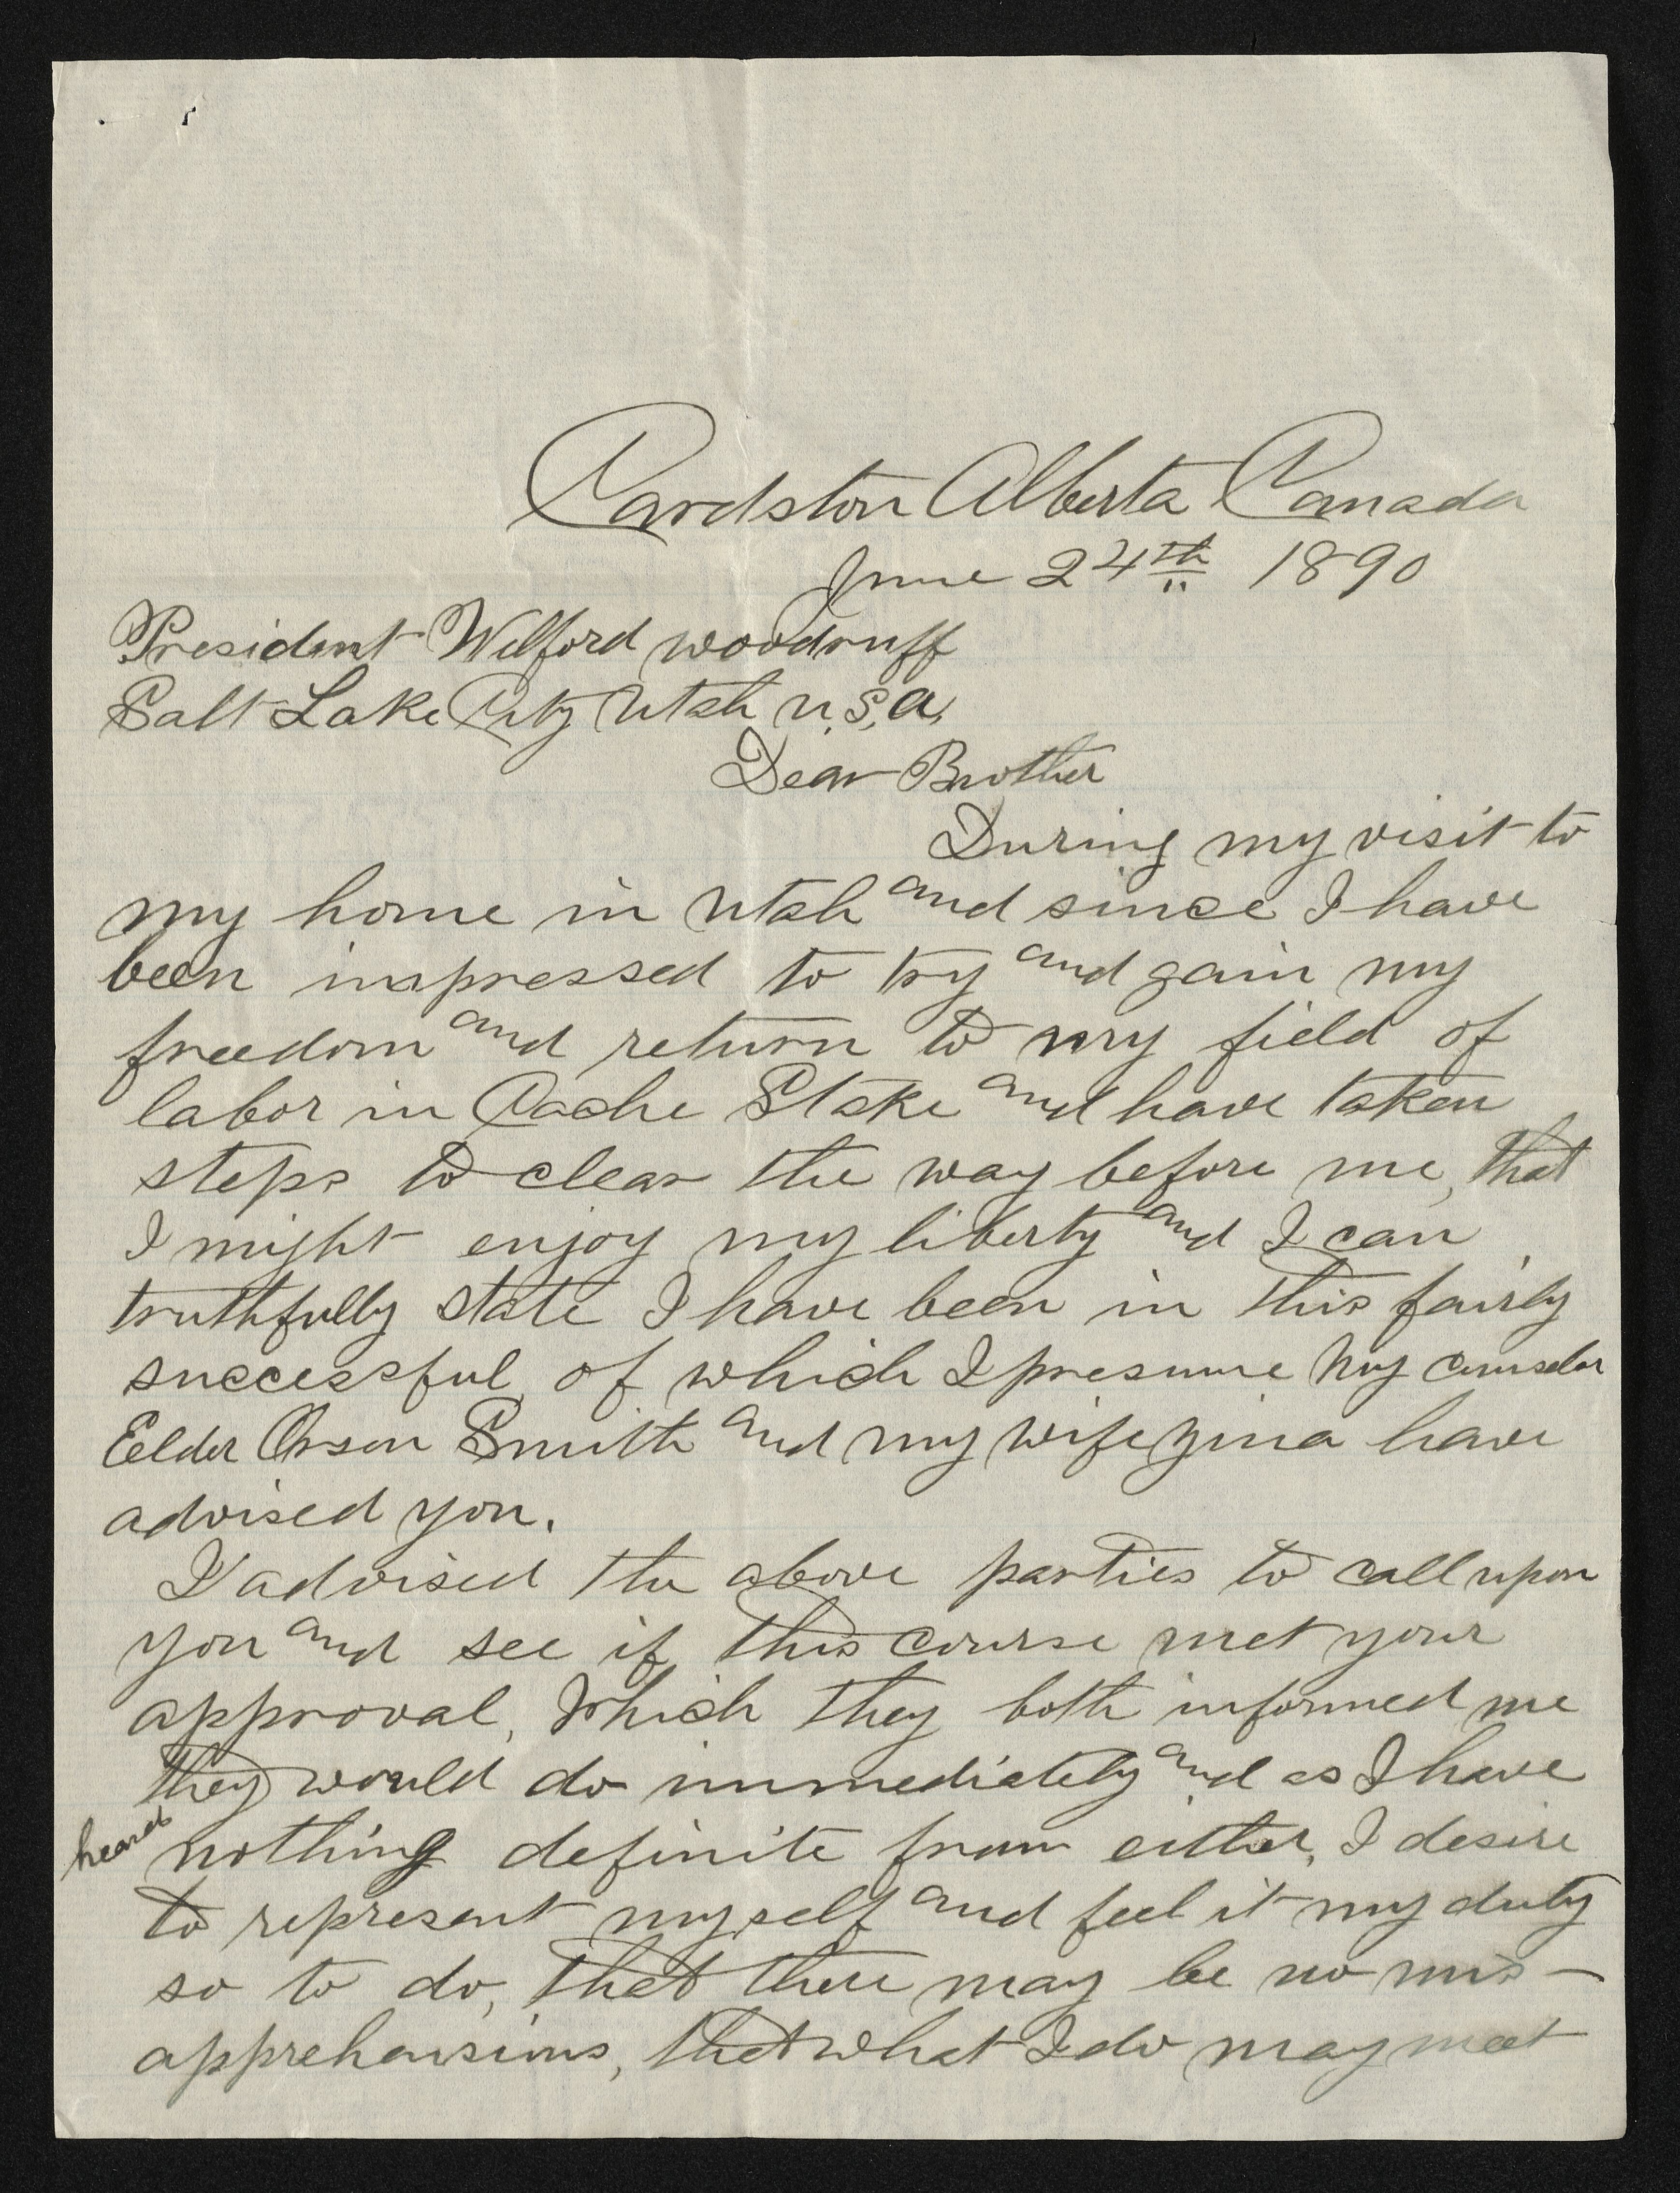 Cardston Alberta Canada
June 24th 1890
President Wilford woodruff
Salt Lake City Utah U.S.A.
Dear Brother
During my visit to
my home in Utah and since I have
been impressed to try and gain my
freedom and return to my field of
labor in Cache Stake and have taken
steps to clear the way before me, that
I might enjoy my liberty and I can
truthfully state I have been in this fairly
successful, of which I presume my counselor
Eelder Orson Smith and my wife Zina have
advised you.
I advised the above parties to call upon
you and see if this course met your
approval, Which they both informed me
they would do immediately and as I have
heard nothing definite from either, I desire
to represent myself and feel it my duty
so to do, that there may be no mis-
apprehensions, that what I do may meet